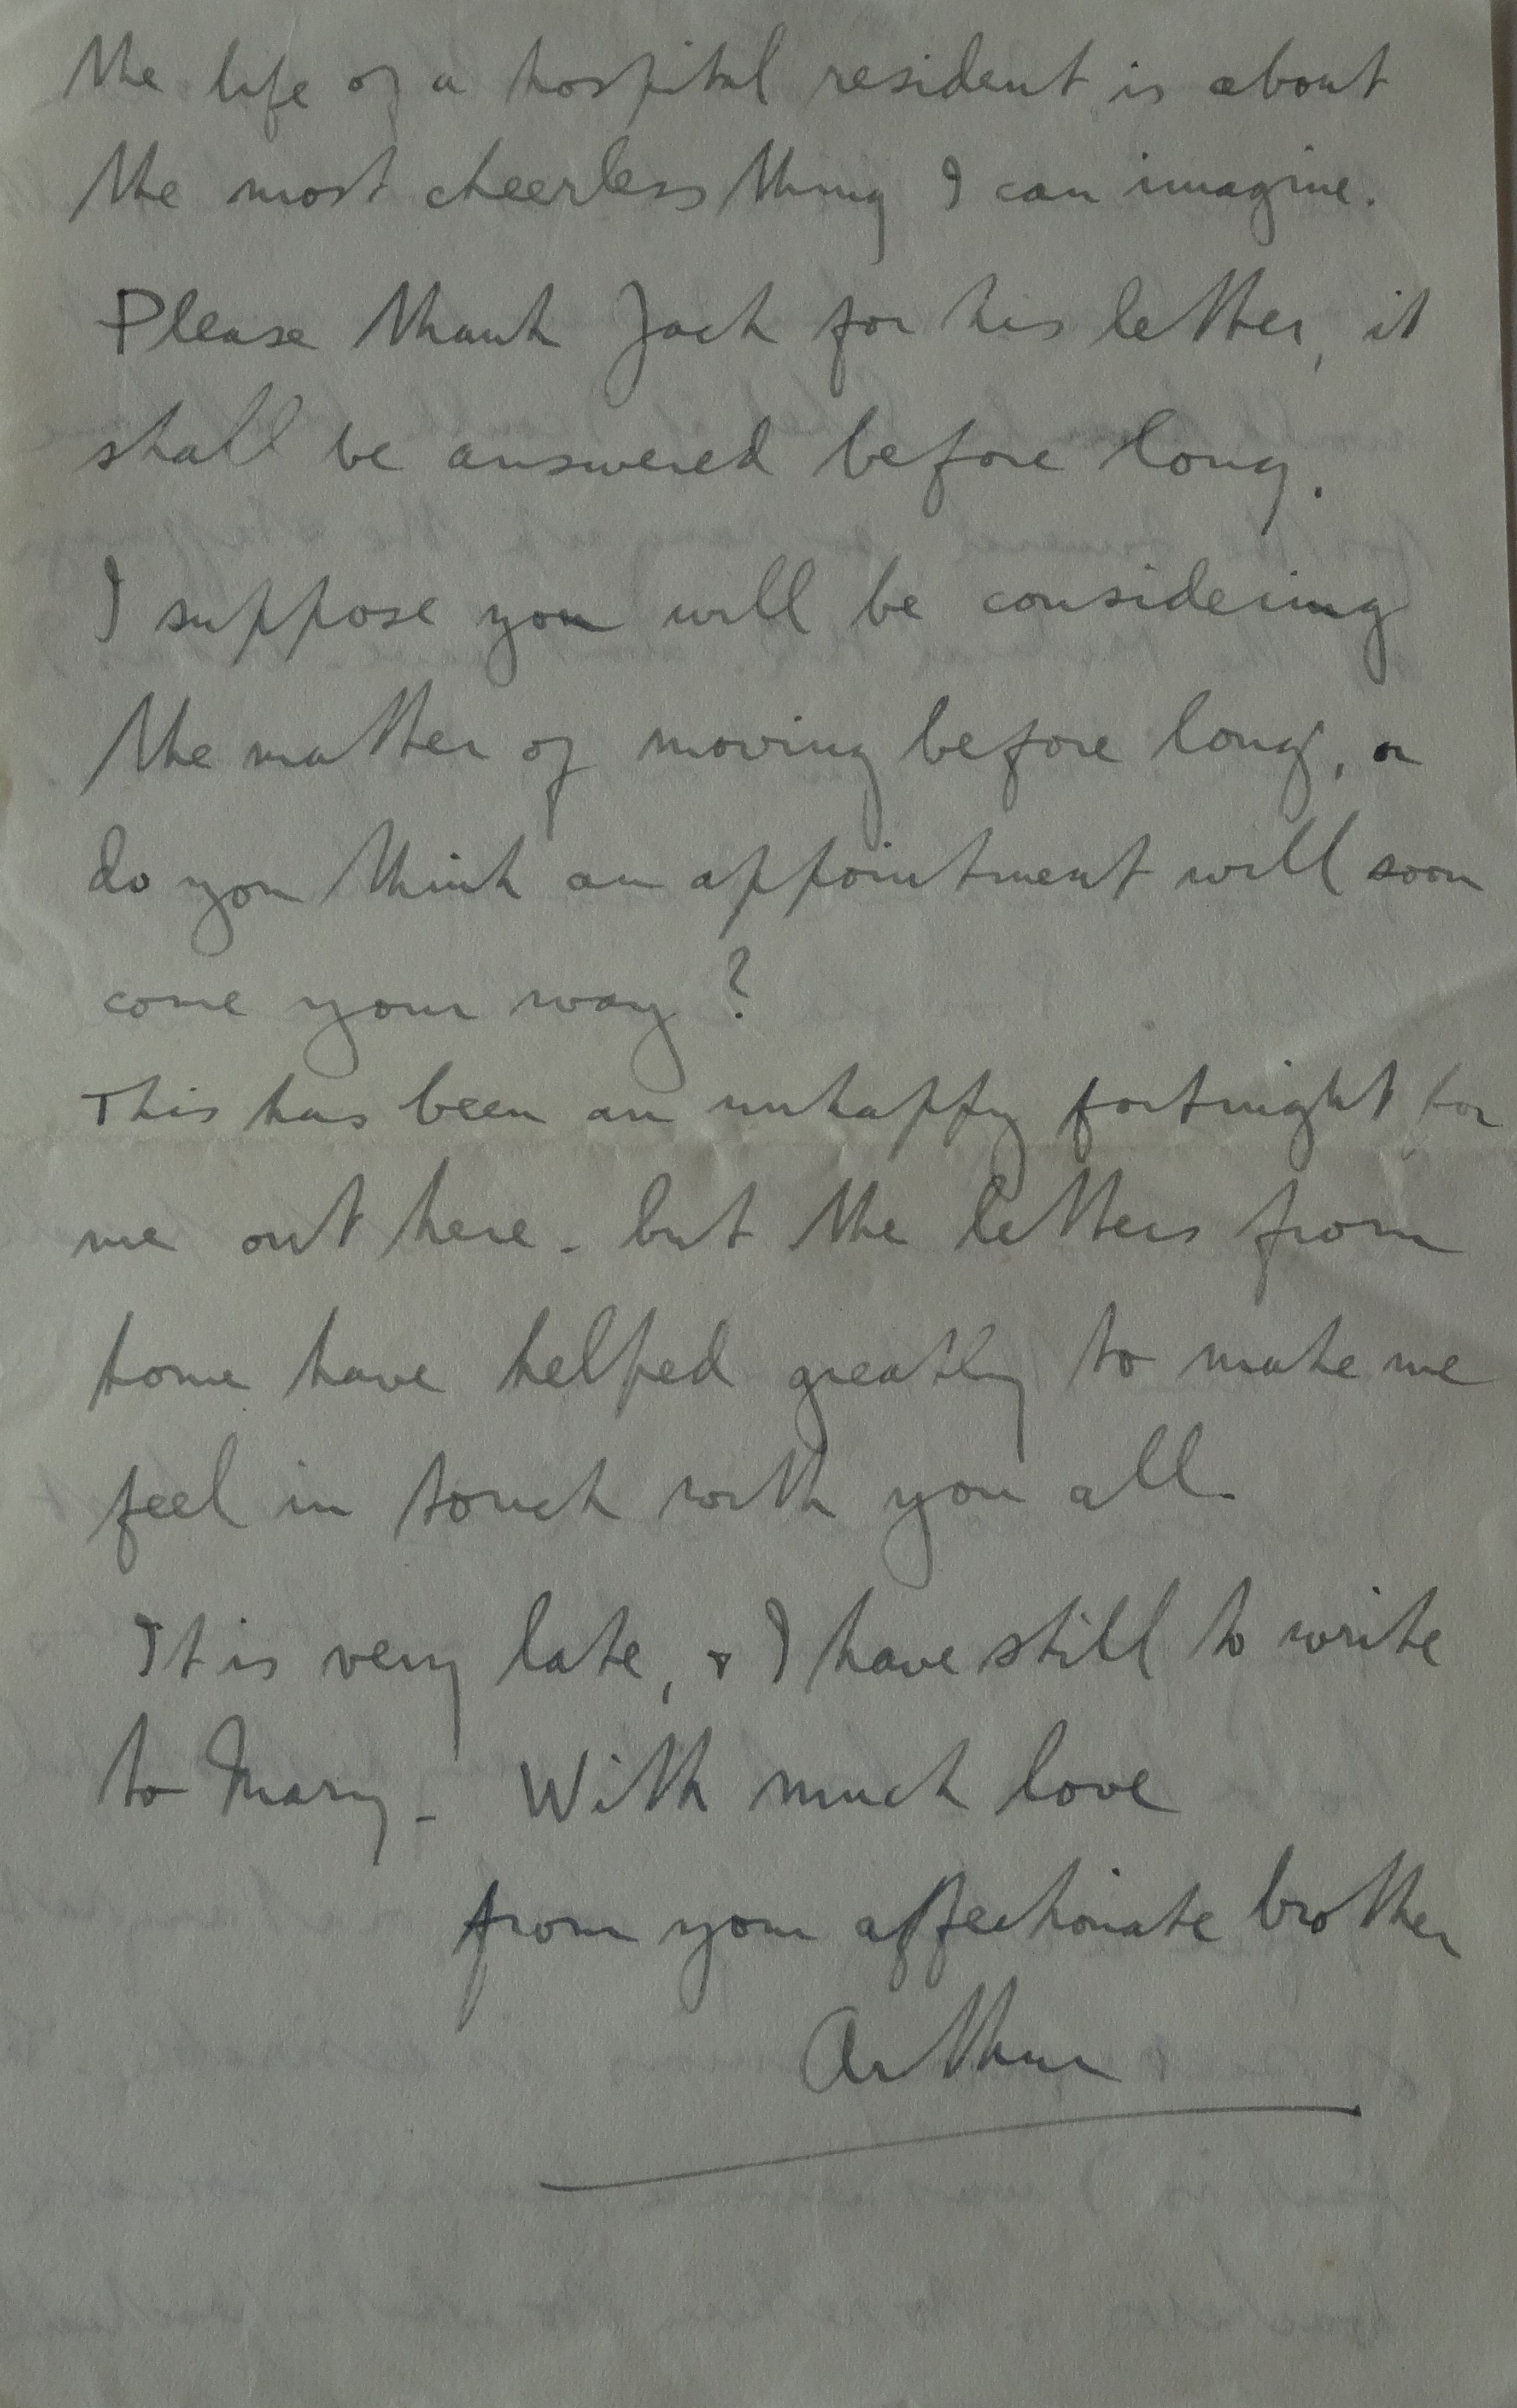 the life of a hospital resident is about
the most cheerless thing I can imagine.
Please thank Jack for his letter, it
shall be answered before long.
I suppose you will be considering
the matter of moving before long, or
do you think an appointment will soon
come your way?
This has been an unhappy fortnight for
me out here - but the letters from
home have helped greatly to make me
feel in touch with you all.
It is very late, & I have still to write
to Mary - With much love
from your affectionate brother
Arthur